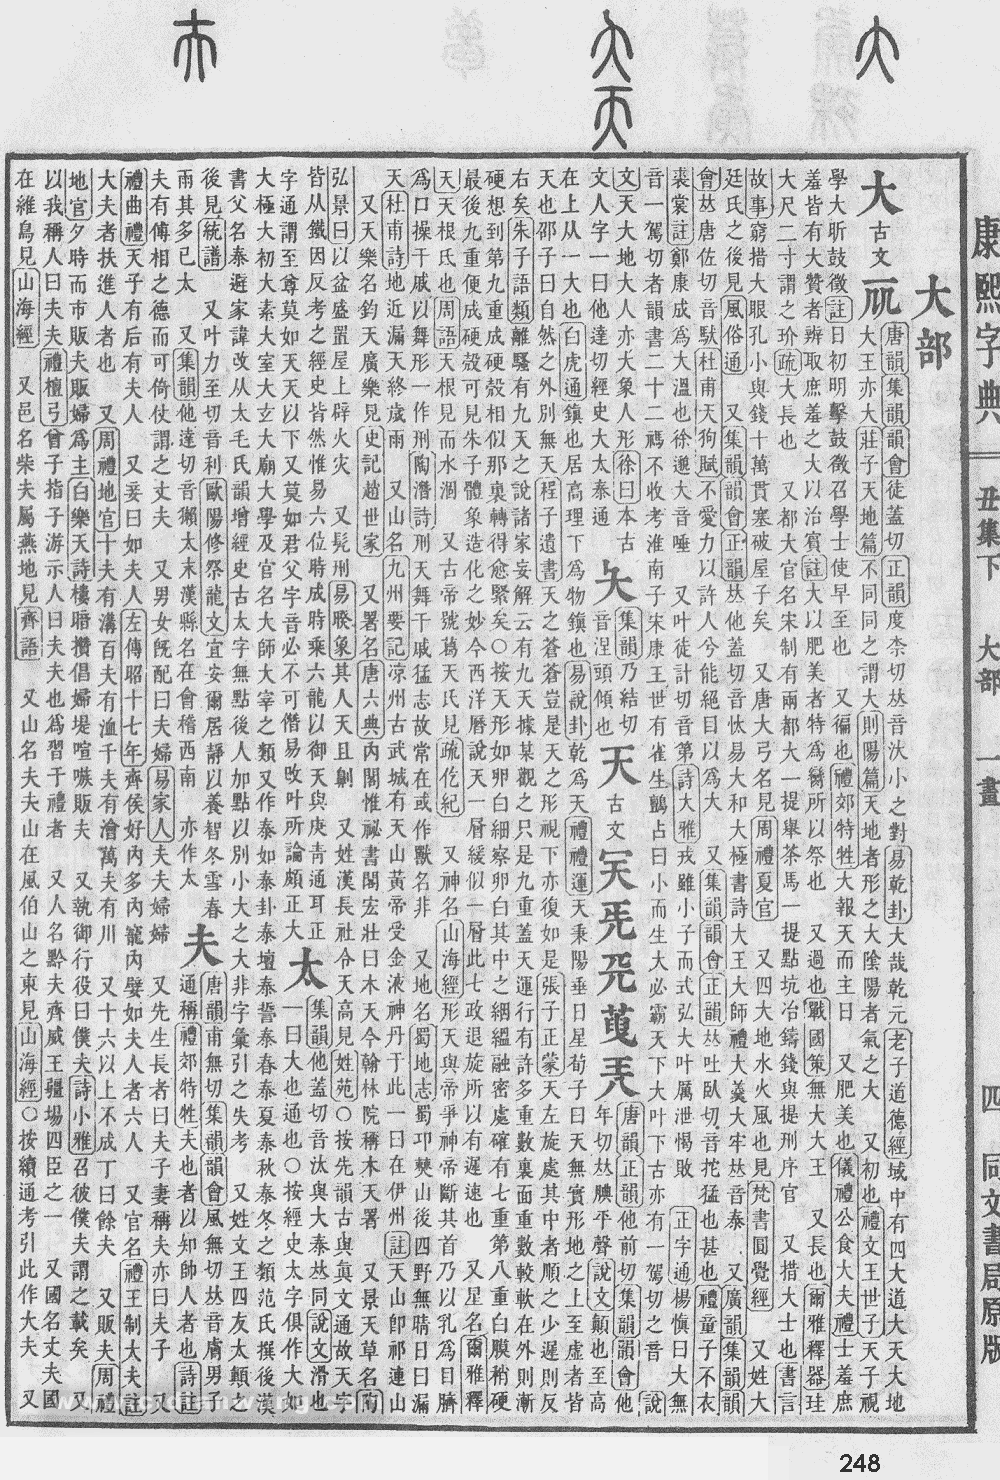 康熙字典 丑集下 大部 一畫 四 同文書局原版
大部
大 古文𠘲
唐韻集韻韻會徒蓋切正韻度柰切𠀤音汏小之對易乾卦大哉乾元老子道德經域中有四大道大天大地
大王亦大莊子天地篇不同同之謂大則陽篇天地者形之大陰陽者氣之大 又初也禮文王世子天子視
學大昕鼓徵註日初明擊鼓徵召學士使早至也 又徧也禮郊特牲大報天而主日 又肥美也儀禮公食大夫禮士羞庶
羞皆有大贊者辨取庶羞之大以治賓註大以肥美者特爲臠所以祭也 又過也戰國策無大大王 又長也爾雅釋器珪
大尺二寸謂之玠疏大長也 又都大官名宋制有兩都大一提舉茶馬一提點坑冶鑄錢與提刑序官 又措大士也書言
故事窮措大眼孔小與錢十萬貫塞破屋子矣 又唐大弓名見周禮夏官 又四大地水火風也見梵書圓覺經 又姓大
廷氏之後見風俗通 又集韻韻會正韻𠀤他蓋切音忲易大和大極書詩大王大師禮大羹大牢𠀤音泰 又廣韻集韻韻
會𠀤唐佐切音馱杜甫天狗賦不愛力以許人兮能絕目以爲大 又集韻韻會正韻𠀤吐臥切音拕猛也甚也禮童子不衣
裘裳註鄭康成爲大溫也徐邈大音唾 又叶徒計切音第詩大雅戎雖小子而式弘大叶厲泄愒敗 正字通楊愼曰大無
音一駕切者韻書二十二禡不收考淮南子宋康王世有雀生鸇占曰小而生大必霸天下大叶下古亦有一駕切之音 說
文天大地大人亦大象人形徐曰本古
文人字一曰他達切經史大太泰通
夨
集韻乃結切
音涅頭傾也
天 古文
唐韻正韻他前切集韻韻會他
年切𠀤腆平聲說文顚也至高
在上从一大也白虎通鎮也居高理下爲物鎮也易說卦乾爲天禮禮運天秉陽垂日星荀子曰天無實形地之上至虛者皆
天也邵子曰自然之外別無天程子遺書天之蒼蒼豈是天之形視下亦復如是張子正蒙天左旋處其中者順之少遲則反
右矣朱子語類離騷有九天之說諸家妄解云有九天據某觀之只是九重蓋天運行有許多重數裏面重數較軟在外則漸
硬想到第九重成硬殼相似那裏轉得愈緊矣○按天形如卵白細察卵白其中之絪縕融密處確有七重第八重白膜稍硬
最後九重便成硬殼可見朱子體象造化之妙今西洋曆說天一層緩似一層此七政退旋所以有遲速也 又星名爾雅釋
天天根氐也周語天根見而水涸 又古帝號葛天氏見疏仡紀 又神名山海經形天與帝爭神帝斷其首乃以乳爲目臍
爲口操干戚以舞形一作刑陶潛詩刑天舞干戚猛志故常在或作獸名非 又地名蜀地志蜀邛僰山後四野無晴日曰漏
天杜甫詩地近漏天終歲雨 又山名九州要記凉州古武城有天山黃帝受金液神丹于此一曰在伊州註天山卽祁連山
又天樂名鈞天廣樂見史記趙世家 又署名唐六典內閣惟祕書閣宏壯曰木天今翰林院稱木天署 又景天草名南
弘景曰以盆盛置屋上辟火灾 又髡刑易睽象其人天且劓 又姓漢長社令天高見姓苑○按先韻古與眞文通故天字
皆从鐵因反考之經史皆然惟易六位時成時乘六龍以御天與庚靑通耳正
字通謂至尊莫如天天以下又莫如君父字音必不可僭易攺叶所論頗正大
太
集韻他蓋切音汰與大泰𠀤同說文滑也
一曰大也通也○按經史太字俱作大如
大極大初大素大室大玄大廟大學及官名大師大宰之類又作泰如泰卦泰壇泰誓泰春泰夏泰秋泰冬之類范氏撰後漢
書父名泰避家諱改从太毛氏韻增經史古太字無點後人加點以別小大之大非字彙引之失考 又姓文王四友太顚之
後見統譜 又叶力至切音利歐陽修祭龍文宜安爾居靜以養智冬雪春
雨其多已太 又集韻他達切音獺太末漢縣名在會稽西南 亦作太
夫
唐韻甫無切集韻韻會風無切𠀤音膚男子
通稱禮郊特牲夫也者以知帥人者也詩註
夫有傅相之德而可倚仗謂之丈夫 又男女旣配曰夫婦易家人夫夫婦婦 又先生長者曰夫子妻稱夫亦曰夫子 又
禮曲禮天子有后有夫人 又妾曰如夫人左傳昭十七年齊侯好內多內寵內嬖如夫人者六人 又官名禮王制大夫註
大夫者扶進人者也 又周禮地官十夫有溝百夫有洫千夫有澮萬夫有川 又十六以上不成丁曰餘夫 又販夫周禮
地官夕時而市販夫販婦爲主白樂天詩樓暗攢倡婦堤喧嗾販夫 又執御行役曰僕夫詩小雅召彼僕夫謂之載矣 又
以我稱人曰夫夫禮檀弓曾子指子游示人曰夫夫也爲習于禮者 又人名黔夫齊威王疆場四臣之一 又國名丈夫國
在維鳥見山海經 又邑名柴夫屬燕地見齊語 又山名夫夫山在風伯山之東見山海經○按續通考引此作大夫 又
248